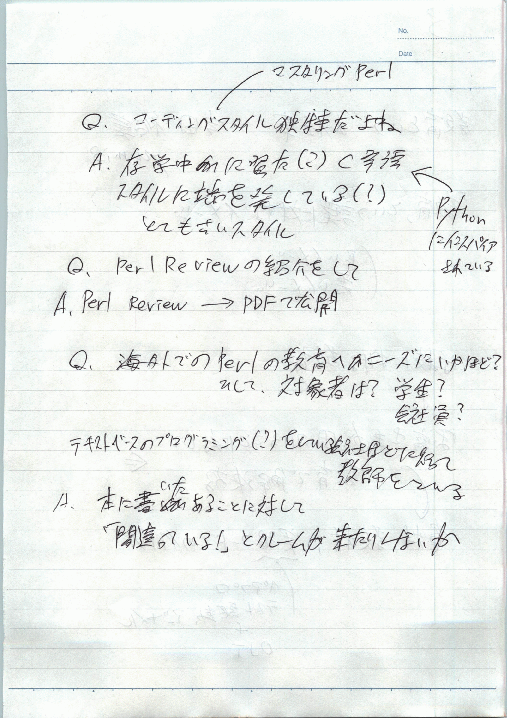 No.
Date
マスタリングPerl
Q. コーディングスタイル独特だよね
A. 在学中に習た(?) C言語
スタイルに端を発している(?)
とても古いスタイル
Python
にインスパイア
されている
Q. Perl Reviewの紹介をして
A. Perl Review → PDFで公開
Q. 海外でのPerlの教育へのニーズはいかほど?
そして、対象者は? 学生?
会社員?
テキストベースのプログラミング(?)をしている
教師をしている
A. 本に書いたあることに対して
「間違っている!」とクレームが来たりしないか